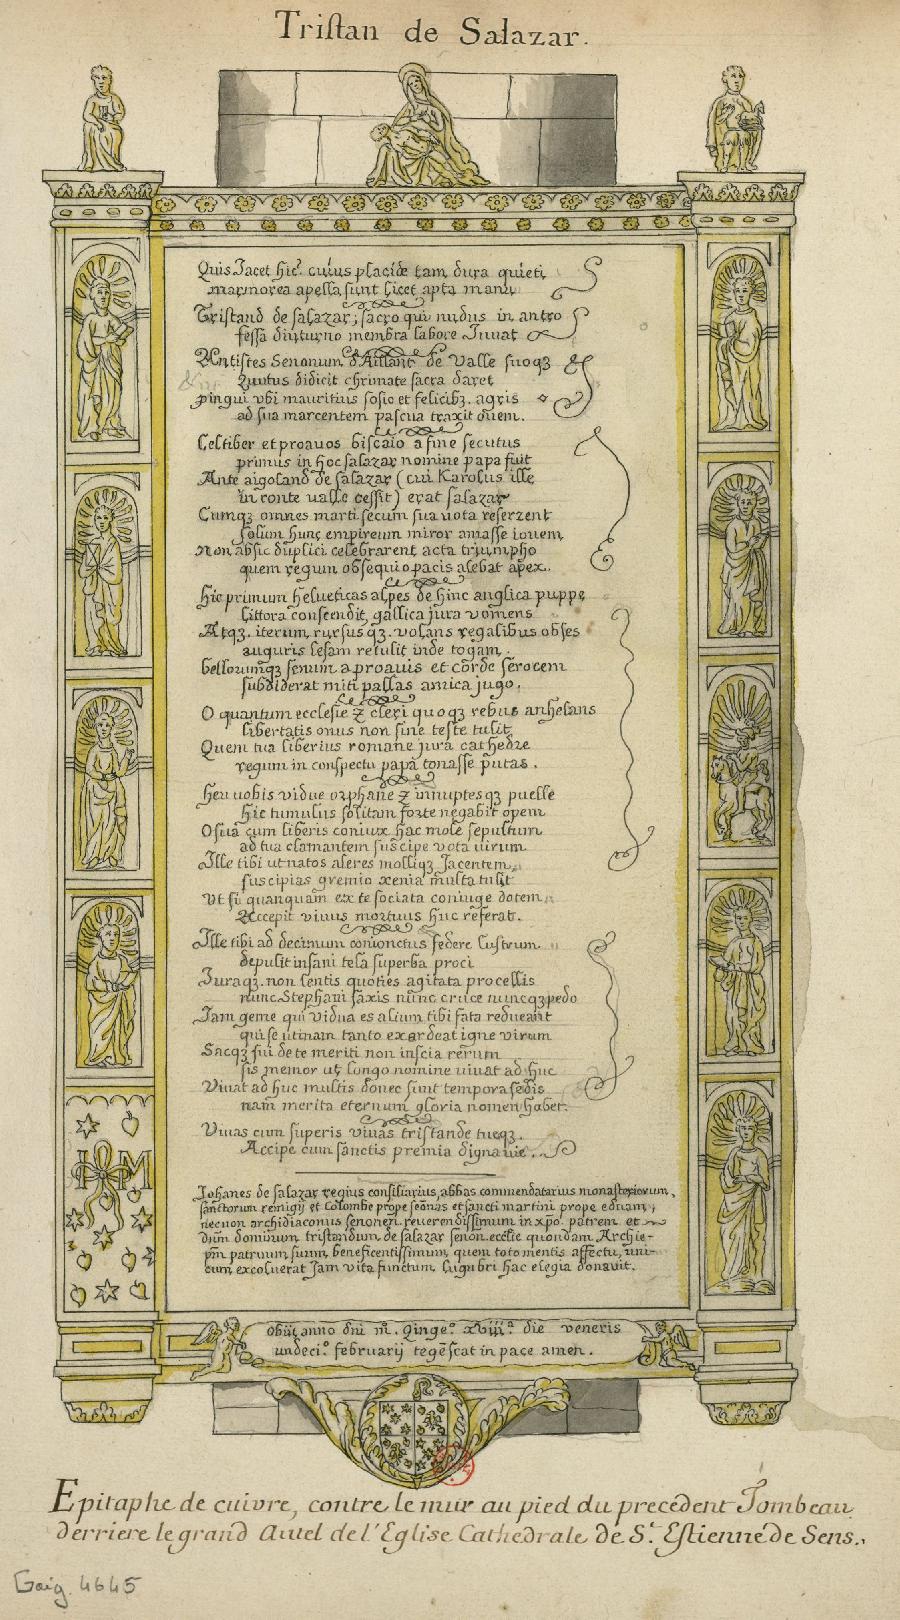 Tristan de Salazar.
Quis Jacet hic? cuius placide tam dura quieti
marmorea apella sunt licet apta manu
Tristand de salazar; sacro qui nudus in antro
fessa diuturno membra labore Juuat
Antistes Senonum d'Aillant de Valle suoqz
quutus didicit chrimate sacra daret
pingui vbi mauritius sosio et felicibz. agris
ad sua marcentem pascua traxit ouem.
Celtiber et proauos biscaio a fine secutus
primus in hoc salazar nomine papa fuit
Ante aigoland de salazar (cui Karolus ille
in ronte ualle cessit) erat salazar
Cumqz omnes marti secum sua uota referzent
solum hunc empireum miror amasse iouem
Non absic duplici celebrarent acta triumpho
quem regum obsequio pacis alebat apex.
Hic primum helueticas alpes de hinc anglica puppe
littora conscendit, gallica jura vomens
Atqz. iterum, rursus qz. volans regalibus obses
auguris lesam retulit inde togam.
bellorumqz senum a proauis et corde ferocem
subdiderat miti pallas amica jugo.
O quantum ecclesie z cleri quoqz rebus anhelans
libertatis onus non sine teste tulit
Quem tua liberius romane jura cathedre
regum in conspectu papa tonasse putas.
Heu uobis vidue orphane z innuptesqz puelle
hic tumulus solitam forte negabit opem
O sua cum liberis coniux hac mole sepultum
ad tua clamantem suscipe vota uirum
Ille tibi ut natos aleres molliqz Jacentem
suscipias gremio xenia multa tulit
Vt si quanquam ex te sociata coniuge dotem
Accepit viuus mortuus huc referat.
Ille tibi ad decimum conionctus federe lustrum
depulit insani tela superba proci
Juraqz. non sentis quoties agitata procellis
nunc Stephani saxis nunc cruce nuncqz pedo
Jam geme qui vidua es alium tibi fata redueant
qui se utinam tanto exardeat igne virum
Sacqz sui de te meriti non inscia rerum
sis memor ut longo nomine viuat ad huc
Viuat ad huc multis donec sunt tempora sedis
nam merita eternum gloria nomen habet.
Viuas cum superis viuas tristande tuqz.
Accipe cum sanctis premia digna uie.
Johanes de salazar regius consiliarius, abbas commendatarius monasteriorum,
sanctorum remigij et Colombe prope senonas et sancti martini prope eduam,
necuon archidiaconus senonen. reuerendissimum in xpo. patrem et
dum dominum tristandum de salazar senon. ecclie quondam Archie-
pm patruum suum, beneficentissimum, quem toto mentis affectu, uni-
cum excoluerat Jam vita functum lugubri hac elegia donauit.
H M
obiit anno dni m. Qinge.o xviii.o die veneris
undeci.o februarij tegescat in pace amen.
Epitaphe de cuivre, contre le mur au pied du precedent Tombeau
derriere le grand Autel de l'Eglise Cathedrale de St. Estienne de Sens.
Gaig. 4645